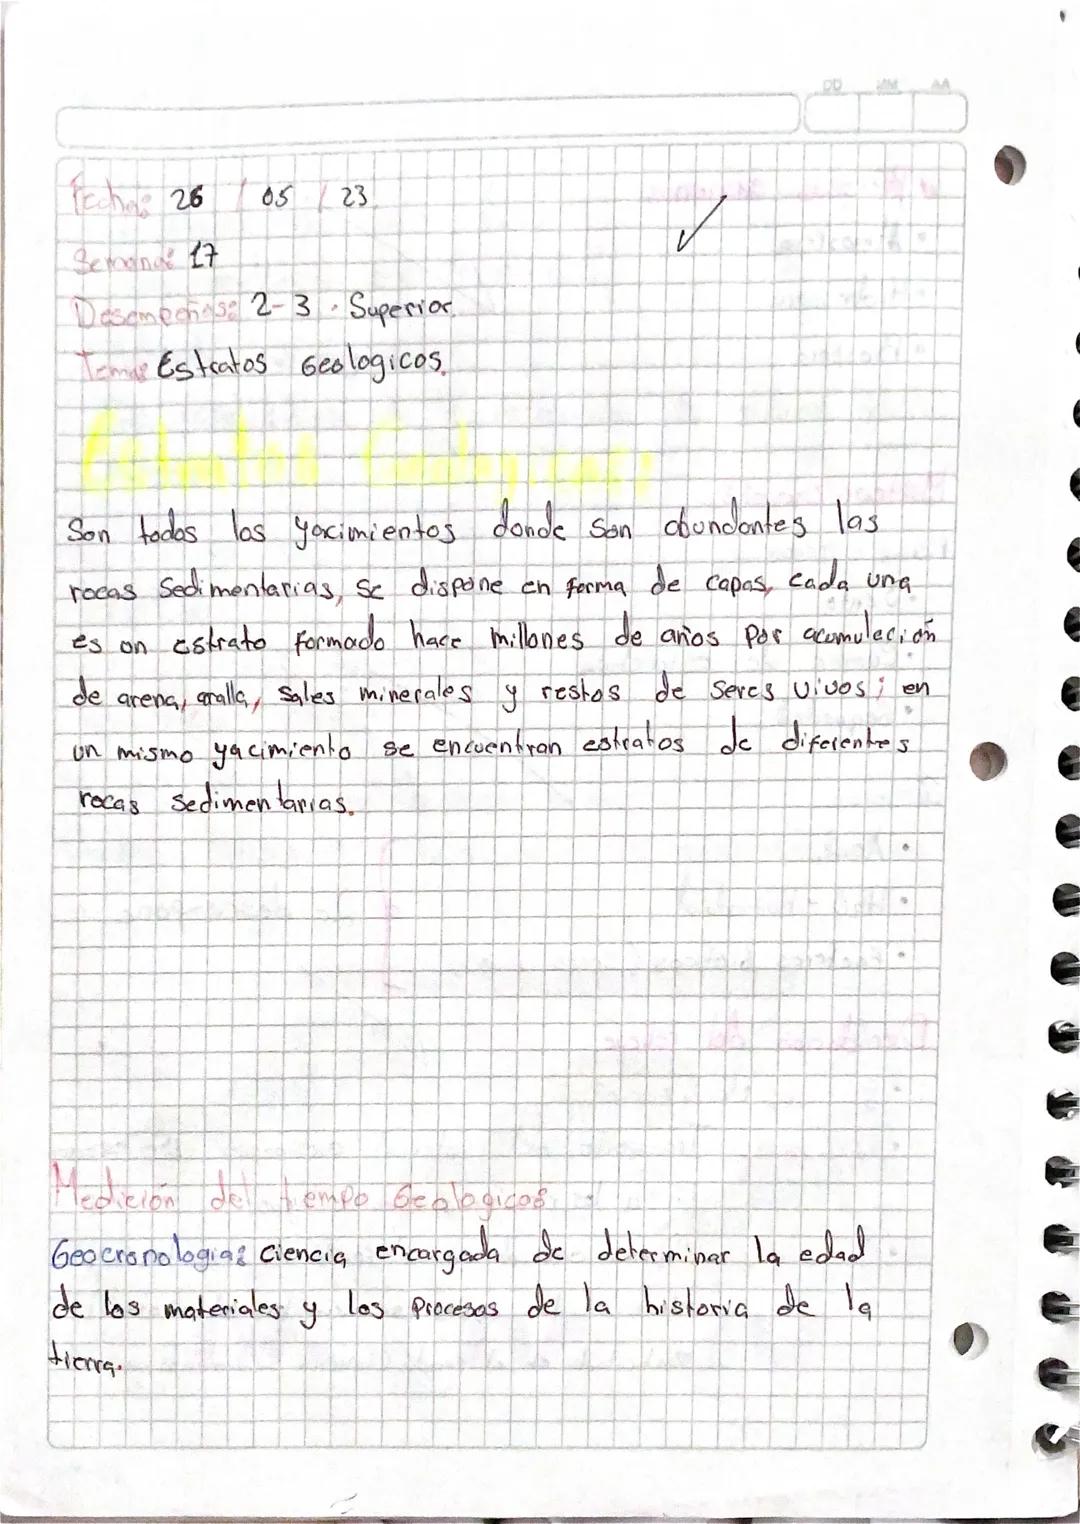 DD MM AA
Fecha: 26 / 05 / 23
Semana: 17
Desempeños: 2-3 . Superior.
Tema: Estratos Geologicos.
Estratos Geologicos:
Son todos los yacimientos donde son abundantes las
rocas Sedimentarias, Se dispone en forma de capas, cada una
es un estrato formado hace millones de años por acumulación
de arena, aralla, sales minerales y restos de seres vivos; en
un mismo yacimiento se encuentran estratos de diferentes
rocas sedimentarias.
Medición del tiempo Geologicos
Geocronologia: Ciencia encargada de determinar la edad
de los materiales y los procesos de la historia de la
tierra.